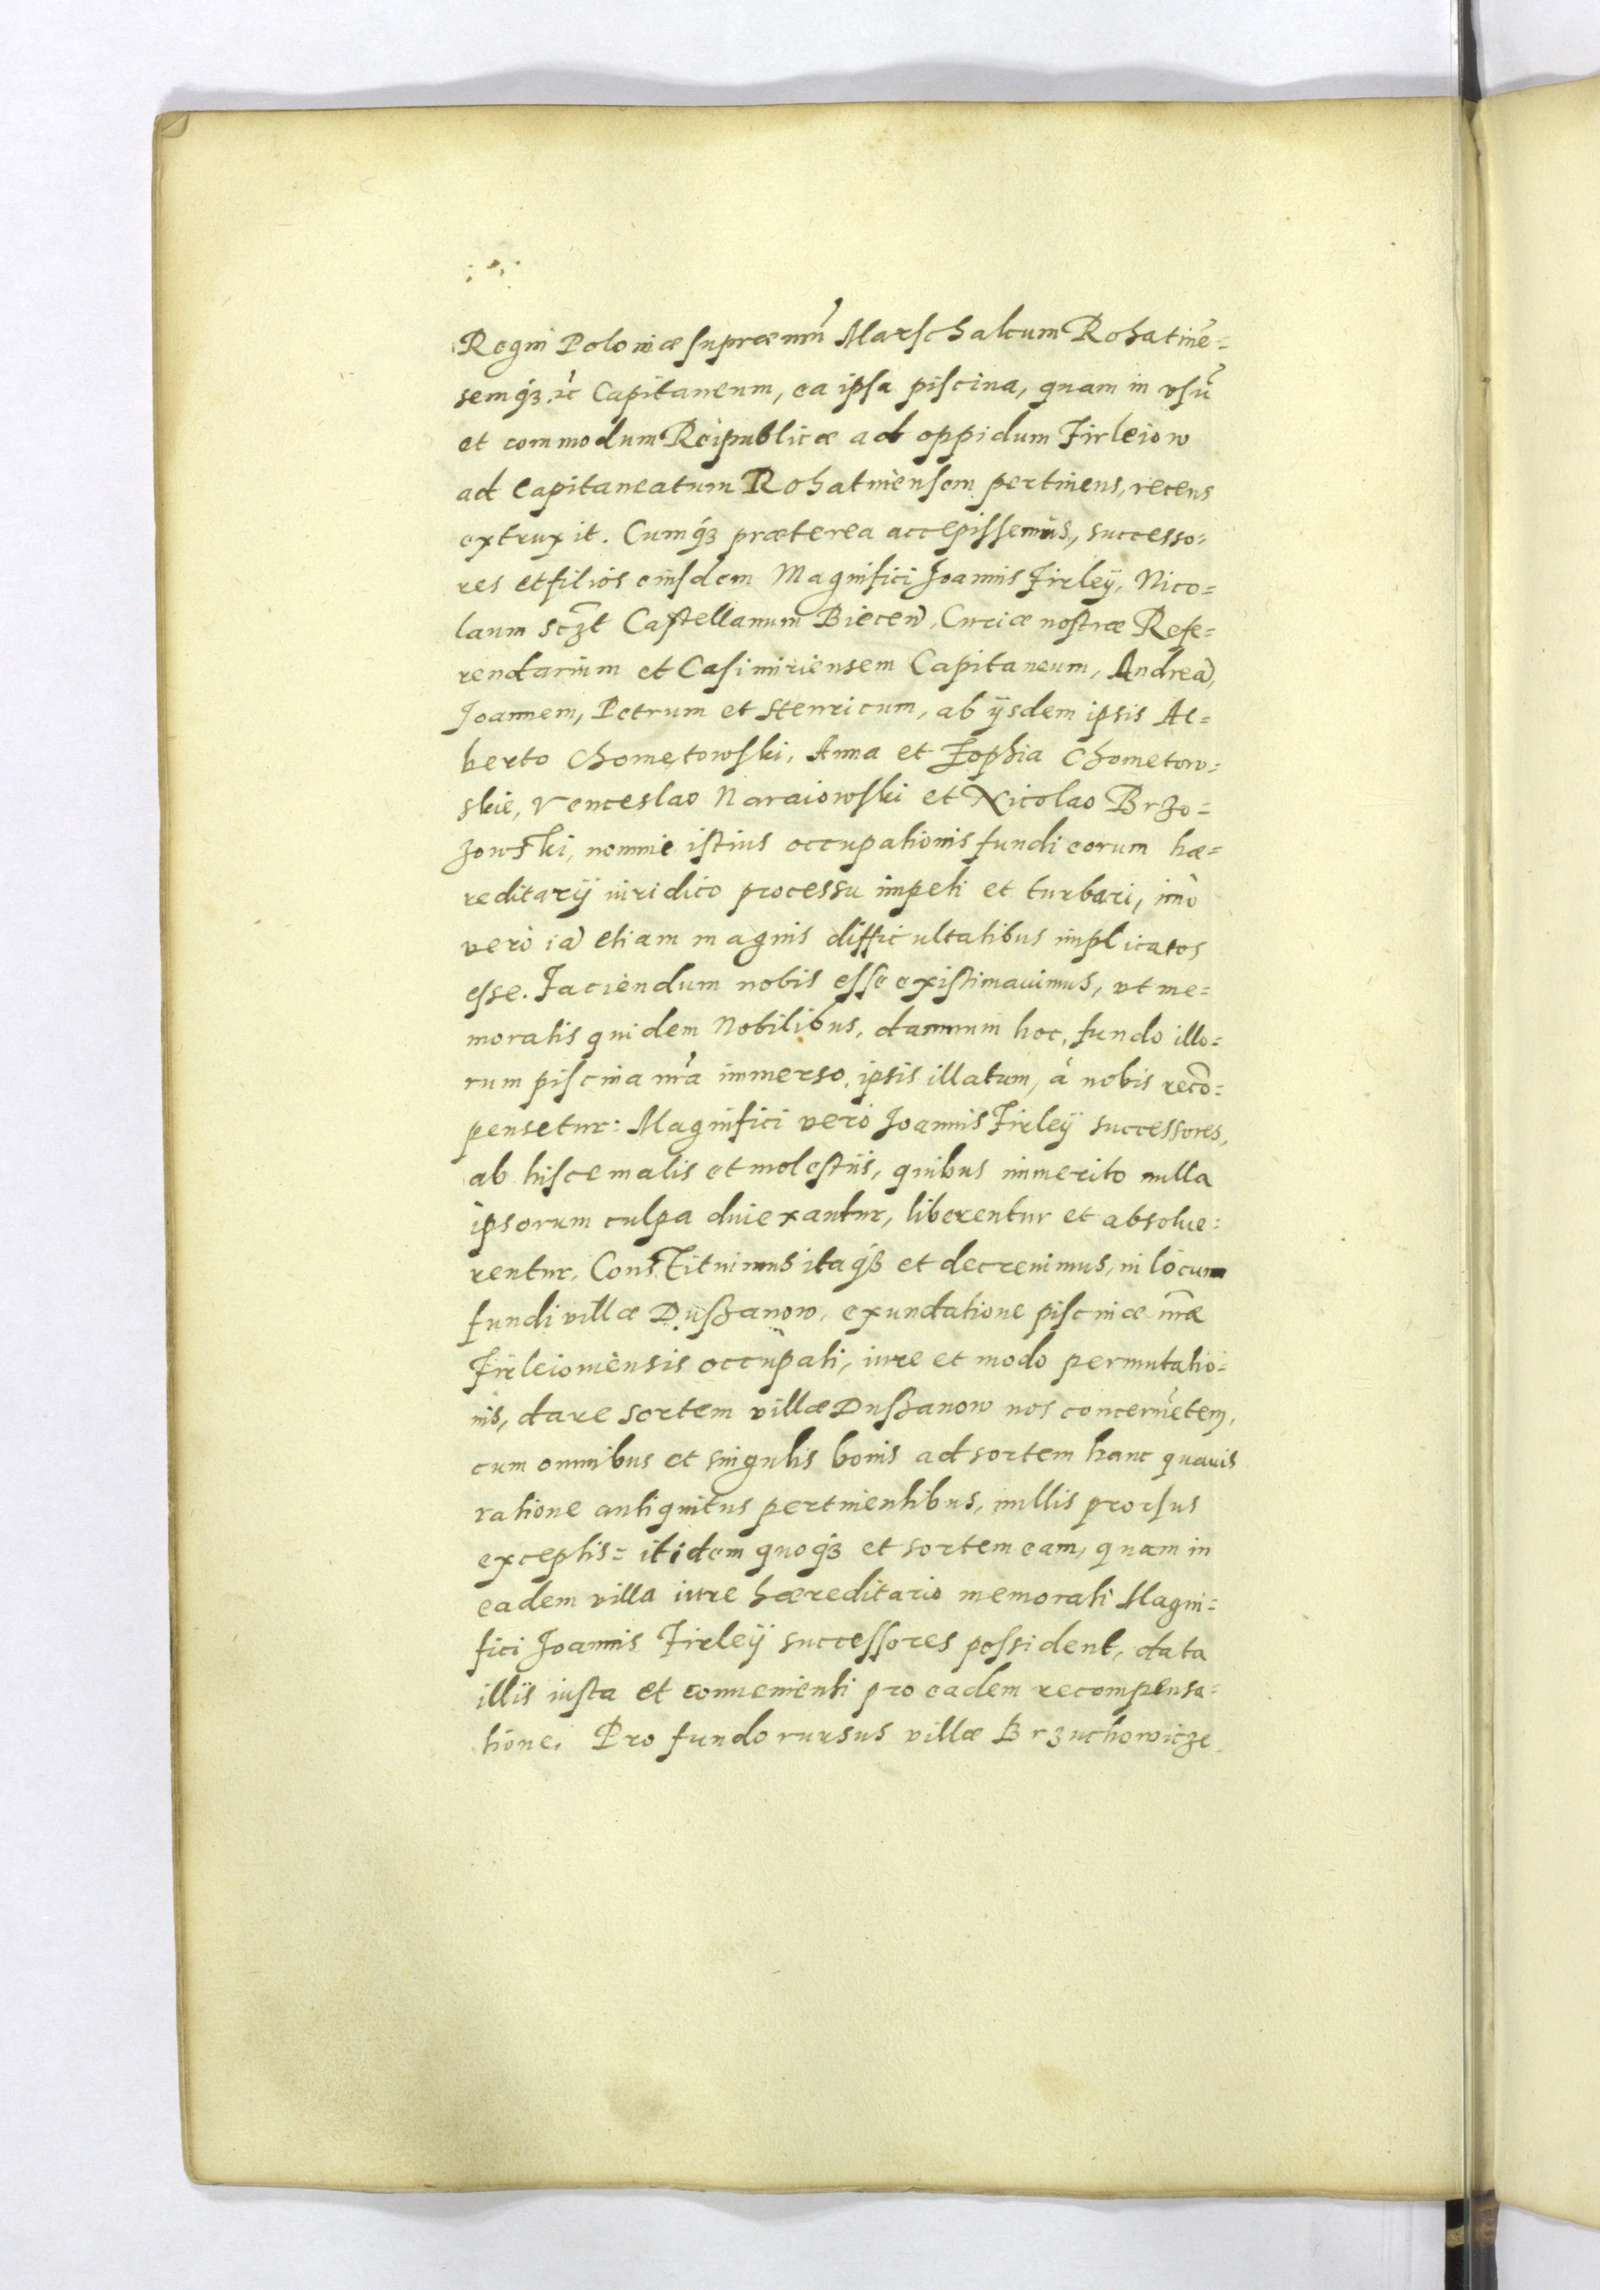 Regni Poloniæ supræmū Marschalcum Rohatinē=
semq́ꝫ ꝛc̀ Capitaneum, ea ipsa piscina, quam in vsū
et commodum Reipublicæ ad oppidum Firleiow
ad Capitaneatum Rohatinensem pertinens, recens
extruxit. Cumq́ꝫ præterea accepissemus, successo=
res et filios eiusdem Magnifici Joannis Firleÿ, Nico=
laum sczt Castellanum Biecen̄, Curiæ nostræ Refe=
rendarium et Casimiriensem Capitaneum, Andreā,
Joannem, Petrum et Henricum, ab ÿsdem ipsis Al=
berto Chometowski, Anna et Zophia Chometow=
skie, Venceslao Naraiowski et Nicolao Brzo=
zowski, nomine istius occupationis fundi eorum hæ=
reditarÿ iuridico processu impeti et turbari, imò
verò iā etiam magnis difficultatibus implicatos
esse. Faciendum nobis esse existimauimus, vt me=
moratis quidem Nobilibus, damnum hoc, fundo illo=
rum piscina nr̄a immerso, ipsis illatum, à nobis recō=
pensetur: Magnifici verò Joannis Firleÿ successores,
ab hisce malis et molestiis, quibus immerito nulla
ipsorum culpa diuexantur, liberentur et absolue=
rentur. Constituimus itaq́ꝫ et decreuimus, in locum
fundi villæ Duszanow, exundatione piscinæ nr̄æ
Firleiouiensis occupati, iure et modo permutatio=
nis, dare sortem villæ Duszanow nos concernētem,
cum omnibus et singulis bonis ad sortem hanc quauis
ratione antiquitus pertinentibus, nullis prorsus
exceptis= itidem quoq́ꝫ et sortem eam, quam in
eadem villa iure hæreditario memorati Magni=
fici Joannis Firleÿ successores possident, data
illis iusta et conuenienti pro eadem recompensa=
tione. Pro fundo rursus villæ Brzuchowicze